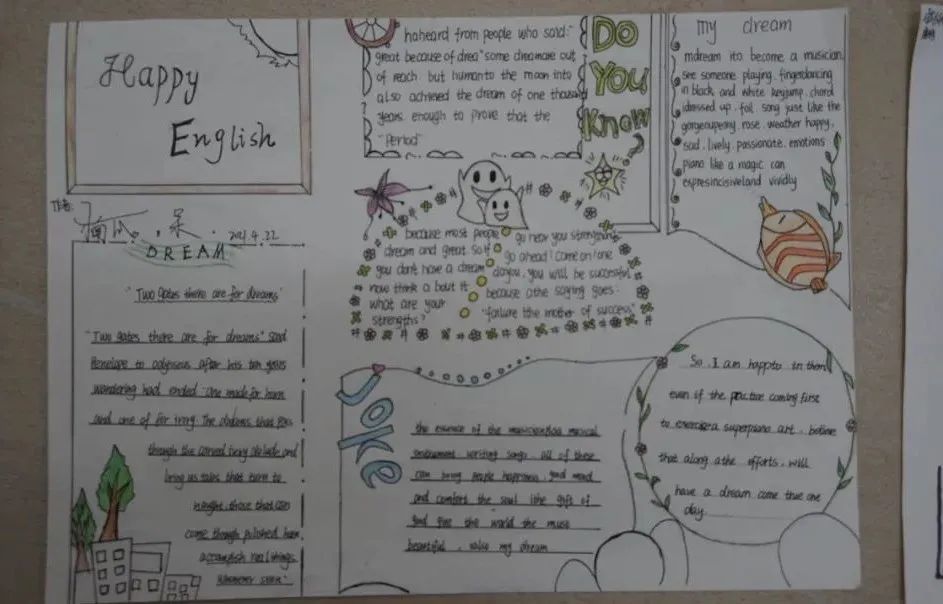 Happy
English
作者:
2021.4.22
DREAM
"Two gates there are for dreams"
"Two gates there are for dreams" said
Penelope to odysseus after his ten years
wandering had ended. One made for horn
and one of for ivory. The dreams that pass
through the carved ivory delude and
bring us tales that turn to
naught those that can
come though polished horn
accomplish real things
Whenever seen"
haheard from people who said:"
great because of drea"some dreamare out
of reach but humanto the moon into
also achieved the dream of one thousand
years. enough to prove that the
"Period"
DO
YOU
Know
?
my dream
mdream ito become a musician
see someone playing. fingerdancing
in black and white keyjump. chord
idressed up. foil song just like the
gorgeoupeony. rose. weather happy.
sad. lively. passionate. emotions
piano like a magic can
espresincisiveland vividly
because most people
dream and great so if
you don't have a dream
now think a bout it
what are your
strengths?
go near you strengthing
go ahead! come on! one
doyou. you will be successful
because athe saying goes:
"failure the mother of success"
JOKE
the essence of the musicianthao musical
instrument writing songs. all of these
can bring people happiness, good mood
and comfort the soul ithe gift of
god give the world the must
beautiful. valso my dream
So, I am happto in them
even if the practice coming first
to exercisea superpiano art. believe
that along athe efforts, will
have a dream come true one
day